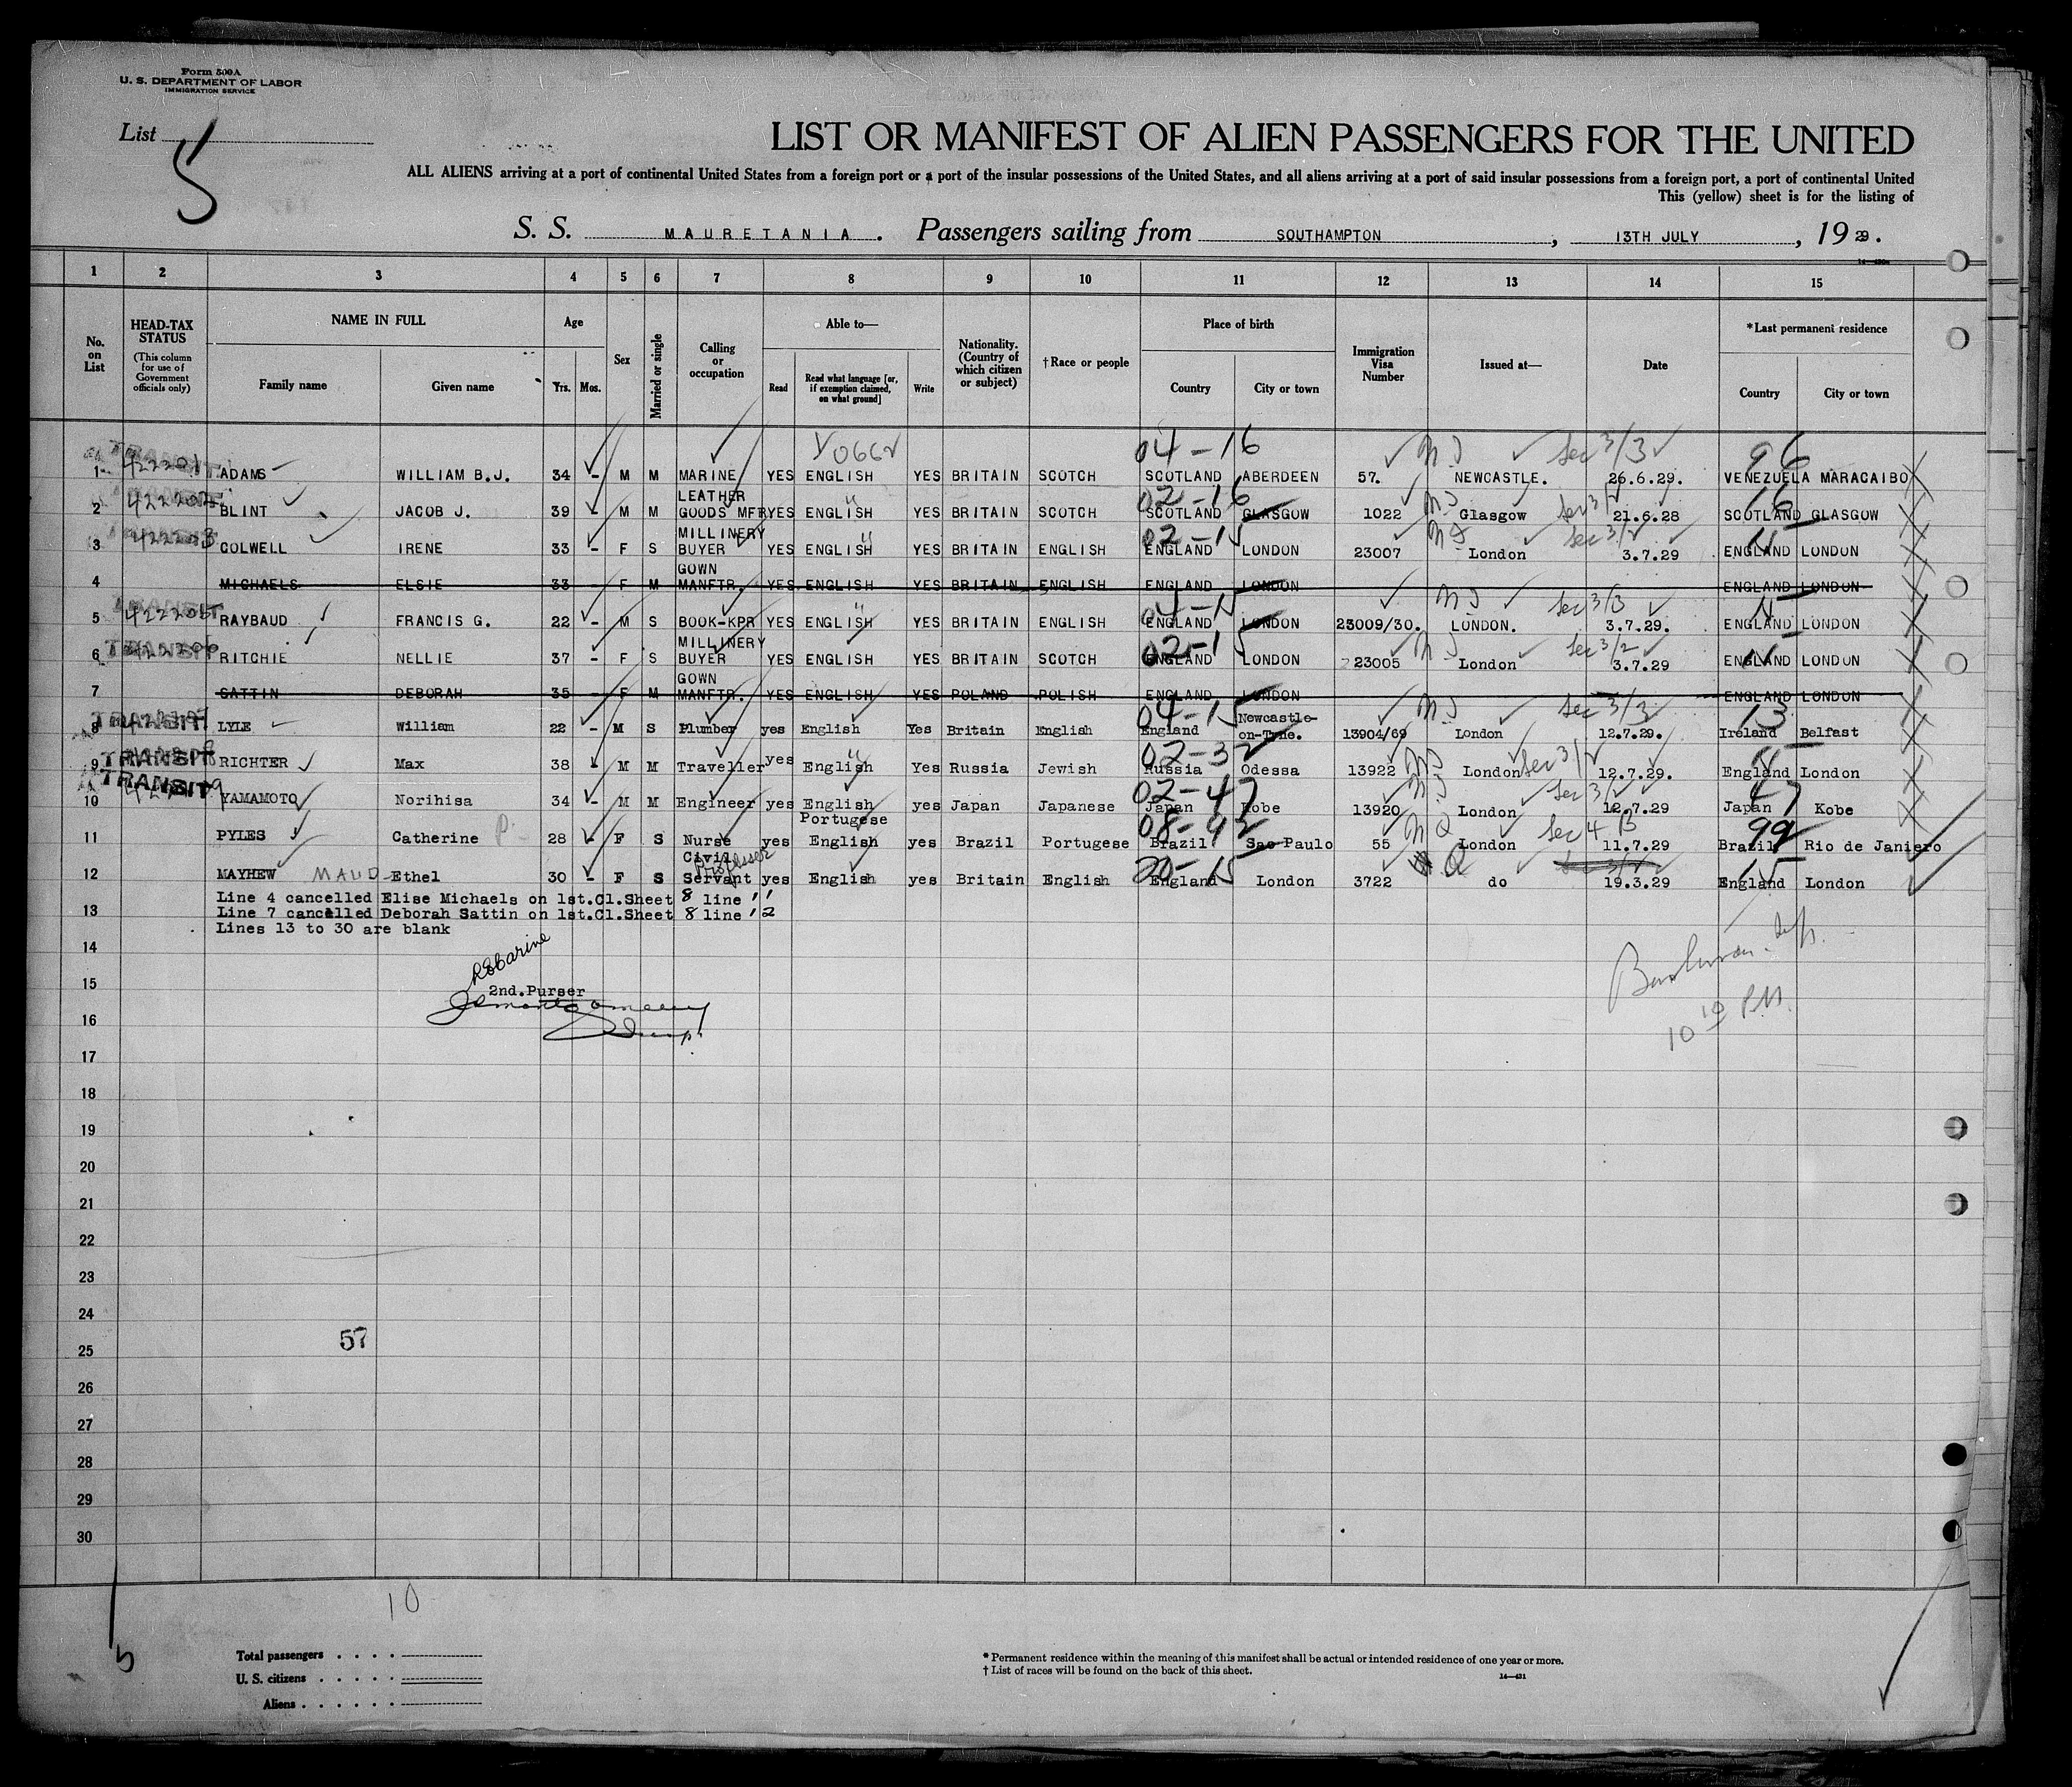 Form 500A
U. S. DEPARTMENT OF LABOR
IMMIGRATION SERVICE
List 5
LIST OR MANIFEST OF ALIEN PASSENGERS FOR THE UNITED
ALL ALIENS arriving at a port of continental United States from a foreign port or a port of the insular possessions of the United States, and all aliens arriving at a port of said insular possessions from a foreign port, a port of continental United
This (yellow) sheet is for the listing of
S. S. MAURETANIA. Passengers sailing from SOUTHAMPTON, 13TH JULY, 1929.
1 2 3 4 5 6 7 8 9 10 11 12 13 14 15
No. on List
HEAD-TAX STATUS (This column for use of Government officials only)
NAME IN FULL Family name Given name
Age Yrs. Mos.
Sex
Married or single
Calling or occupation
Able to— Read Read what language [or, if exemption claimed, on what ground] Write
Nationality. (Country of which citizen or subject)
†Race or people
Place of birth Country City or town
Immigration Visa Number
Issued at—
Date
*Last permanent residence Country City or town
V0662 04-16 N.J Sec 3/3 96
1 TRANSIT 422201 ADAMS WILLIAM B.J. 34 - M M MARINE YES ENGLISH YES BRITAIN SCOTCH SCOTLAND ABERDEEN 57. NEWCASTLE. 26.6.29. VENEZUELA MARACAIBO
02-16 16
2 422202 BLINT JACOB J. 39 - M M LEATHER GOODS MFR YES ENGLISH YES BRITAIN SCOTCH SCOTLAND GLASGOW 1022 Glasgow 21.6.28 SCOTLAND GLASGOW
02-15
3 422203 COLWELL IRENE 33 - F S MILLINERY BUYER YES ENGLISH YES BRITAIN ENGLISH ENGLAND LONDON 23007 London 3.7.29 ENGLAND LONDON
4 MICHAELS ELSIE 33 - F M GOWN MANFTR. YES ENGLISH YES BRITAIN ENGLISH ENGLAND LONDON ENGLAND LONDON
04-15 N.J Sec 3/3
5 TRANSIT 422205 RAYBAUD FRANCIS G. 22 - M S BOOK-KPR YES ENGLISH YES BRITAIN ENGLISH ENGLAND LONDON 23009/30. LONDON. 3.7.29. ENGLAND LONDON
02-15 Sec 3/2
6 TRANSIT 422206 RITCHIE NELLIE 37 - F S MILLINERY BUYER YES ENGLISH YES BRITAIN SCOTCH ENGLAND LONDON 23005 London 3.7.29 ENGLAND LONDON
7 SATTIN DEBORAH 35 - F M GOWN MANFTR. YES ENGLISH YES POLAND POLISH ENGLAND LONDON ENGLAND LONDON
04-15 N.J Sec 3/3 13
8 TRANSIT LYLE William 22 - M S Plumber yes English Yes Britain English England Newcastle-on-Tyne. 13904/69 London 12.7.29. Ireland Belfast
02-32 Sec 3/2
9 TRANSIT RICHTER Max 38 - M M Traveller yes English Yes Russia Jewish Russia Odessa 13922 London 12.7.29. England London
02-47 Sec 3/2 47
10 TRANSIT YAMAMOTO Norihisa 34 - M M Engineer yes English yes Japan Japanese Japan Kobe 13920 London 12.7.29 Japan Kobe
08-42 N Q Sec 4 B 99
11 PYLES Catherine P. 28 - F S Nurse yes Portugese English yes Brazil Portugese Brazil Sao Paulo 55 London 11.7.29 Brazil Rio de Janiero
20-15 Q 15
12 MAYHEW MAUD Ethel 30 - F S Civil Servant Professor yes English yes Britain English England London 3722 do 19.3.29 England London
Line 4 cancelled Elise Michaels on 1st.Cl.Sheet 8 line 11
13 Line 7 cancelled Deborah Sattin on 1st.Cl.Sheet 8 line 12
Lines 13 to 30 are blank
14
15 2nd.Purser
10 10 P.M.
16
17
18
19
20
21
22
23
24
57
25
26
27
28
29
30
10
5
Total passengers
U. S. citizens
Aliens
* Permanent residence within the meaning of this manifest shall be actual or intended residence of one year or more.
† List of races will be found on the back of this sheet.
14—431